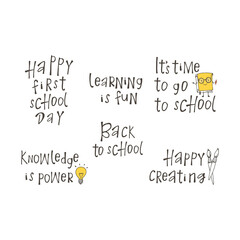 HAPPY
FIRST
SCHOOL
DAY
LEARNING
is FUN
ITS TIME
TO GO
TO SCHOOL
KNOWLEDGE
is POWER
BACK
TO SCHOOL
HAPPY
CREATING